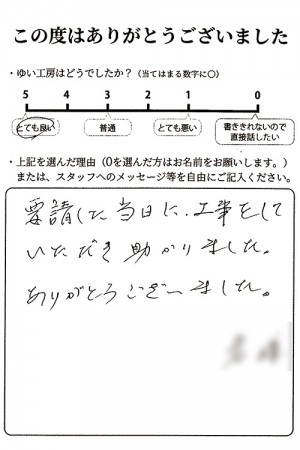 この度はありがとうございました
・ゆい工房はどうでしたか？（当てはまる数字に○）
5 4 3 2 1 0
とても良い 普通 とても悪い 書ききれないので直接話したい
・上記を選んだ理由（0を選んだ方はお名前をお願いします。）
または、スタッフへのメッセージ等を自由にご記入ください。
要請した当日に、工事をして
いただき助かりました。
ありがとうございました。